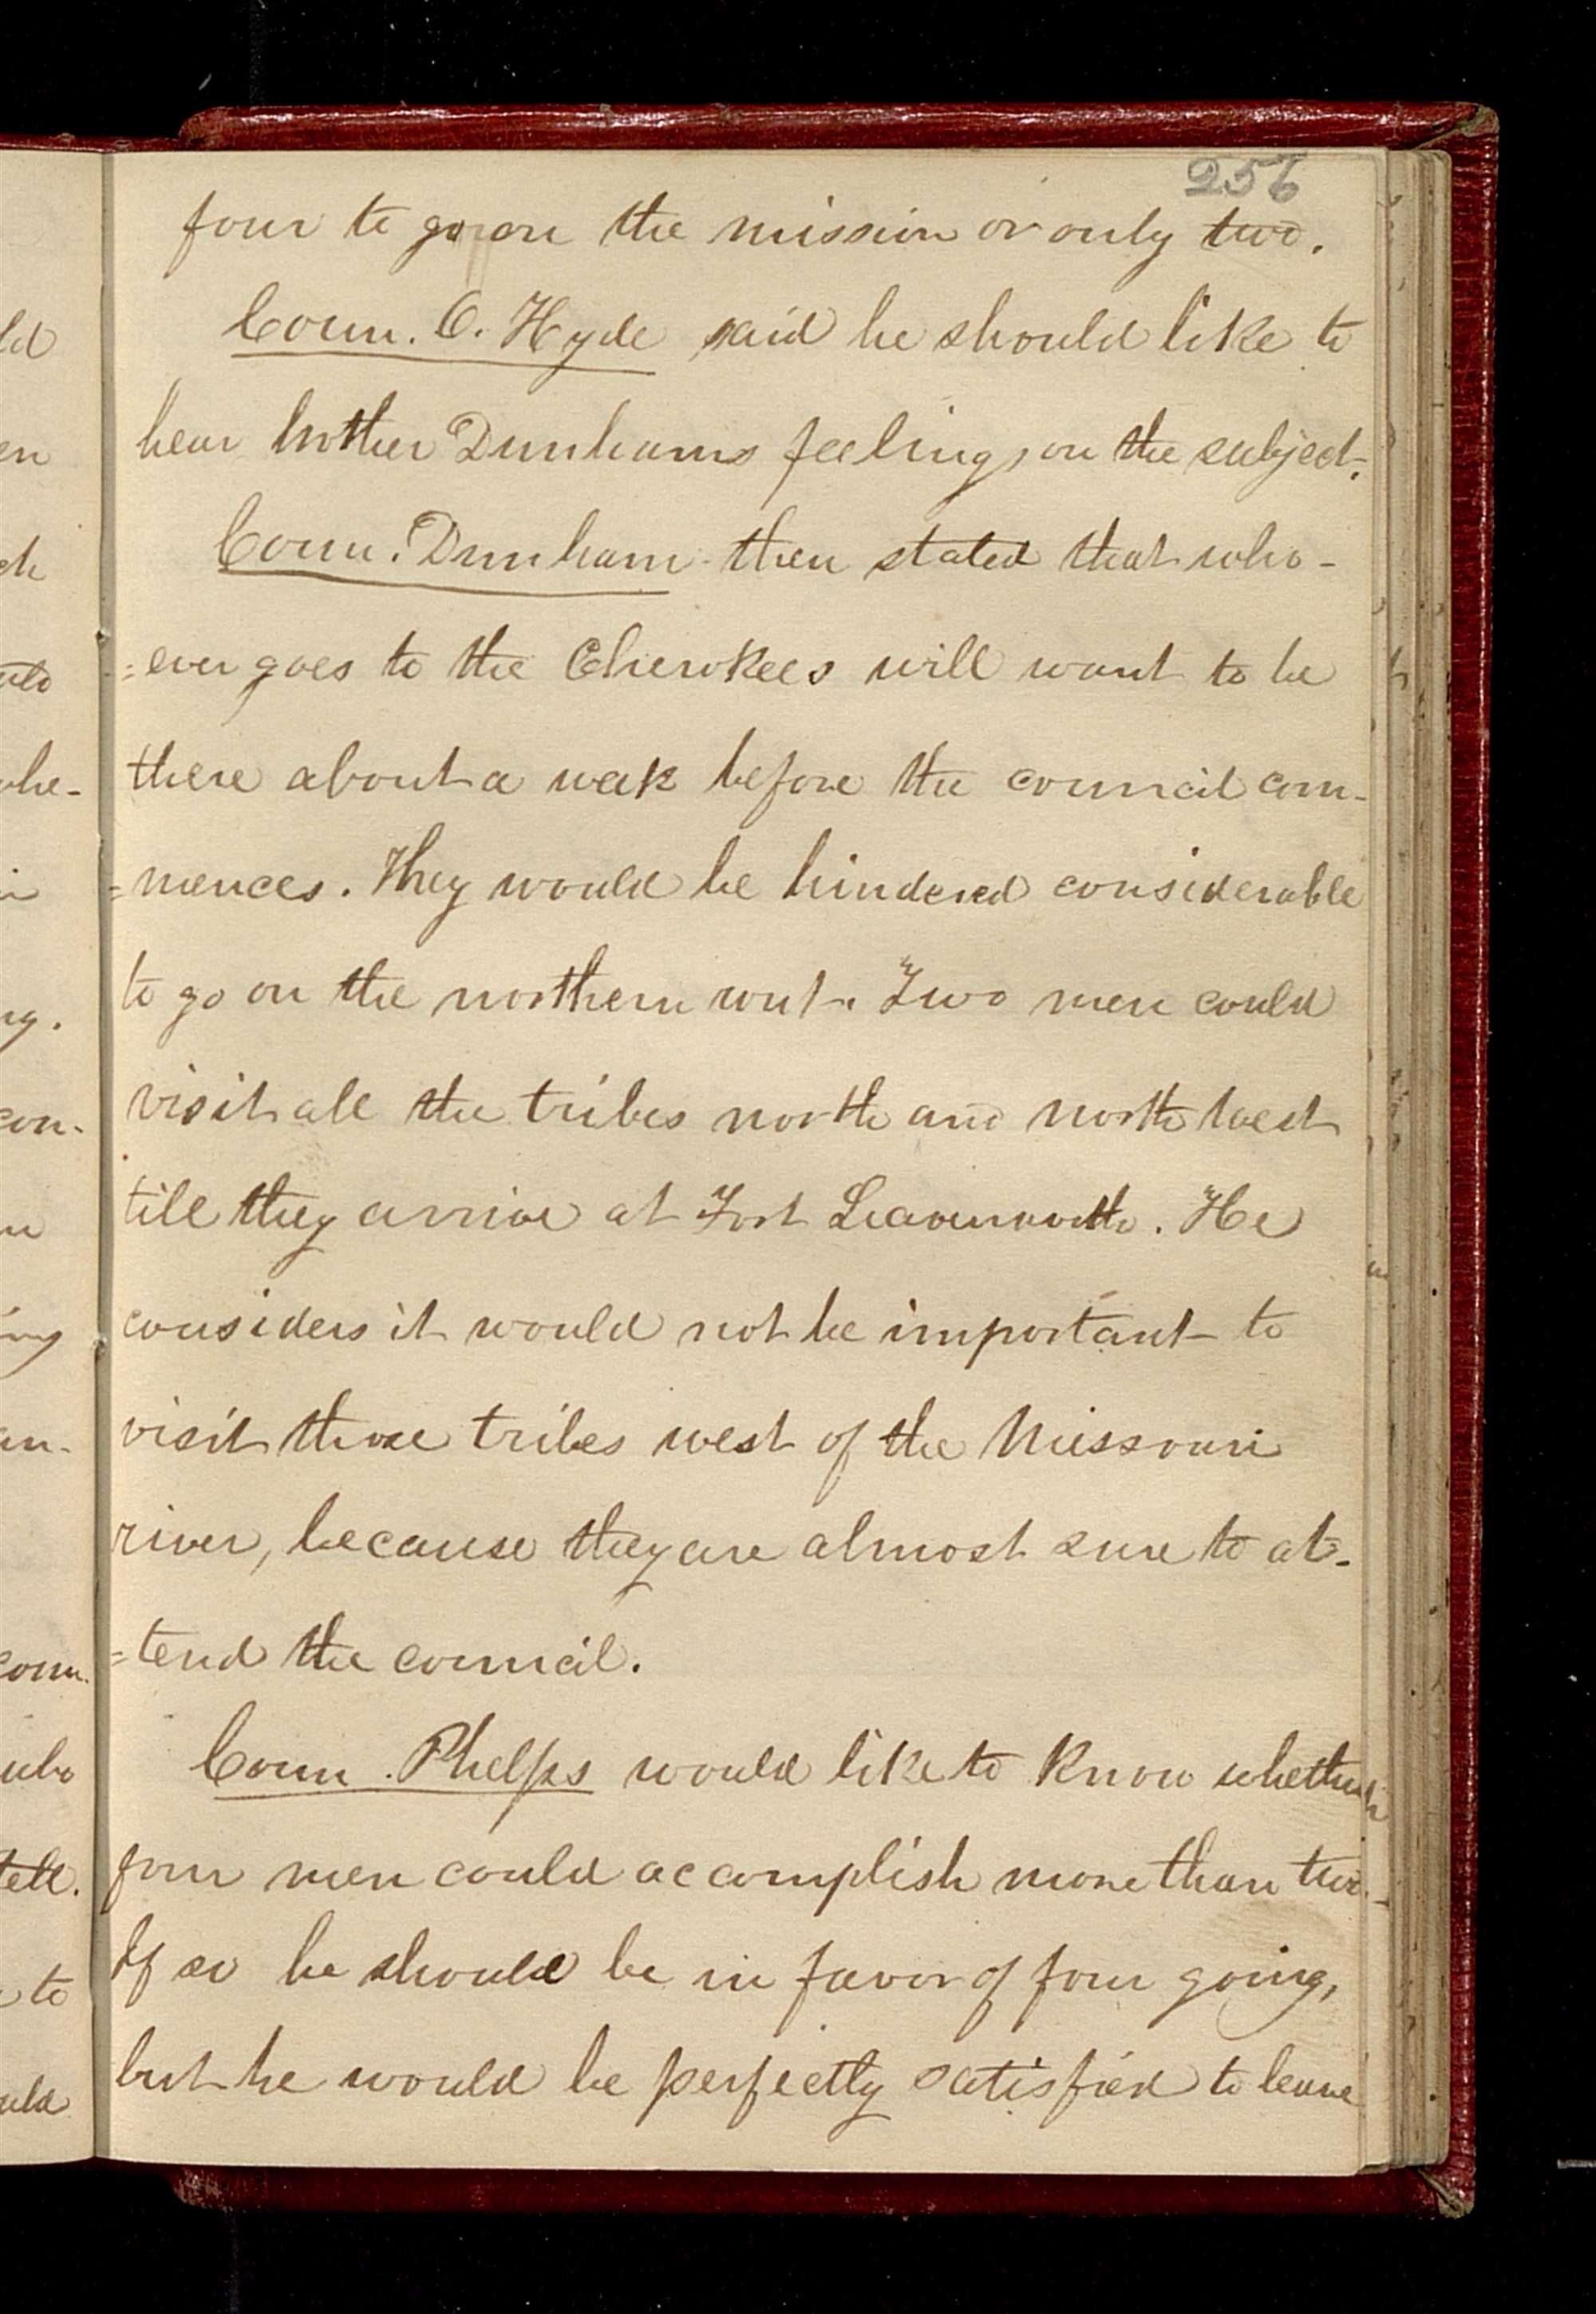 256
four to go on the mission or only two.
Coun. O. Hyde said he should like to
hear brother Dunhams feelings on the subject.
Coun. Dunham then stated that who-
=ever goes to the Cherokees will want to be
there about a week before the council com-
=mences. They would be hindered considerable
to go on the northern rout. Two men could
visit all the tribes north and north west
till they arrive at Fort Leavenworth. He
considers it would not be important to
visit those tribes west of the Missouri
river, because they are almost sure to at-
=tend the council.
Coun. Phelps would like to know whether
four men could accomplish more than two.
If so he should be in favor of four going,
but he would be perfectly satisfied to leave